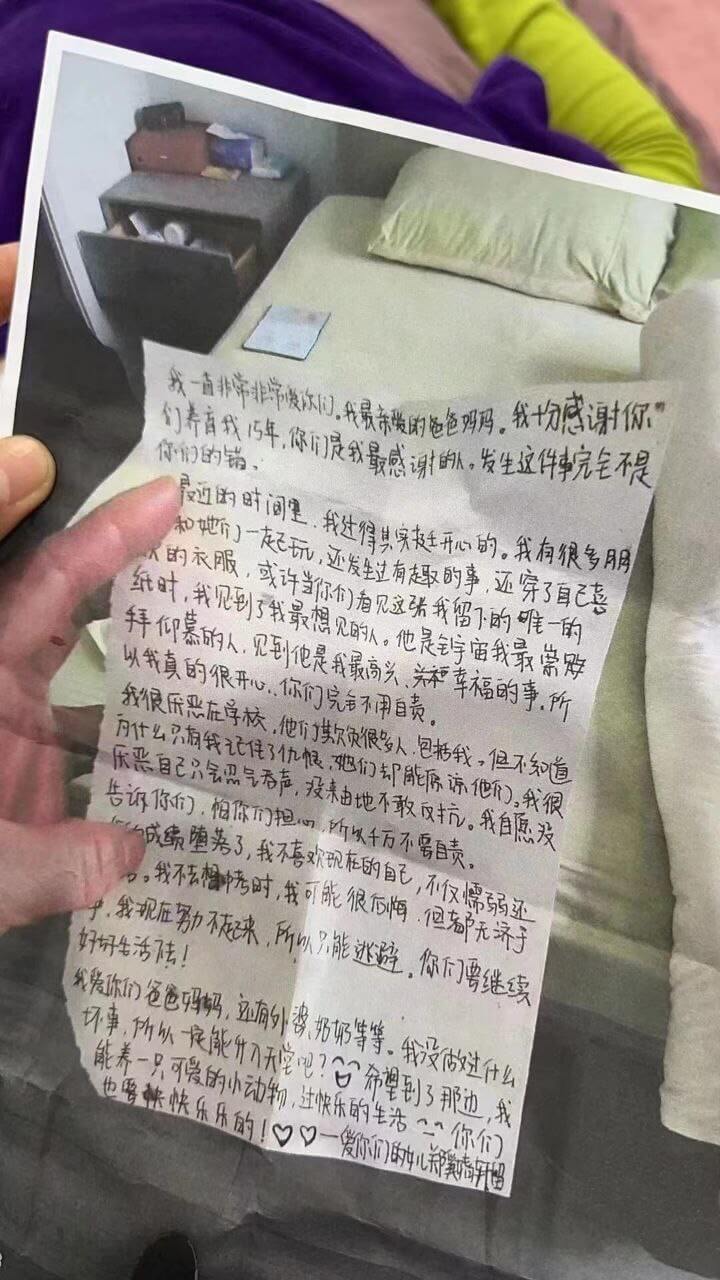 我一直非常非常爱你们。我最亲爱的爸爸妈妈。我十分感谢你
们养育我15年，你们是我最感谢的人。发生这件事完全不是
你们的错。
最近的时间里，我过得其实挺开心的。我有很多朋
和她们一起玩，还发生过有趣的事，还穿了自己喜
的衣服，或许当你们看见这张我留下的唯一的
纸时，我见到了我最想见的人。他是全宇宙我最崇
拜仰慕的人，见到他是我最高兴、幸福的事，所
以我真的很开心，你们完全不用自责。
我很厌恶在学校，他们欺负很多人，包括我。但不知道
为什么只有我记住了仇恨，她们却能原谅他们。我很
厌恶自己只会忍气吞声，没来由地不敢反抗。我自愿没
告诉你们，怕你们担心，所以千万不要自责。
成绩堕落了，我不喜欢现在的自己，不仅懦弱还
。我不去中考时，我可能很后悔，但都无济于
事，我现在努力不起来，所以只能逃避。你们要继续
好好生活下去！
我爱你们爸爸妈妈，还有外婆、奶奶等等。我没做过什么
坏事，所以一定能升入天堂吧？希望到了那边，我
能养一只可爱的小动物，过快乐的生活 你们
也要快快乐乐的！♡♡—爱你们的女儿郑